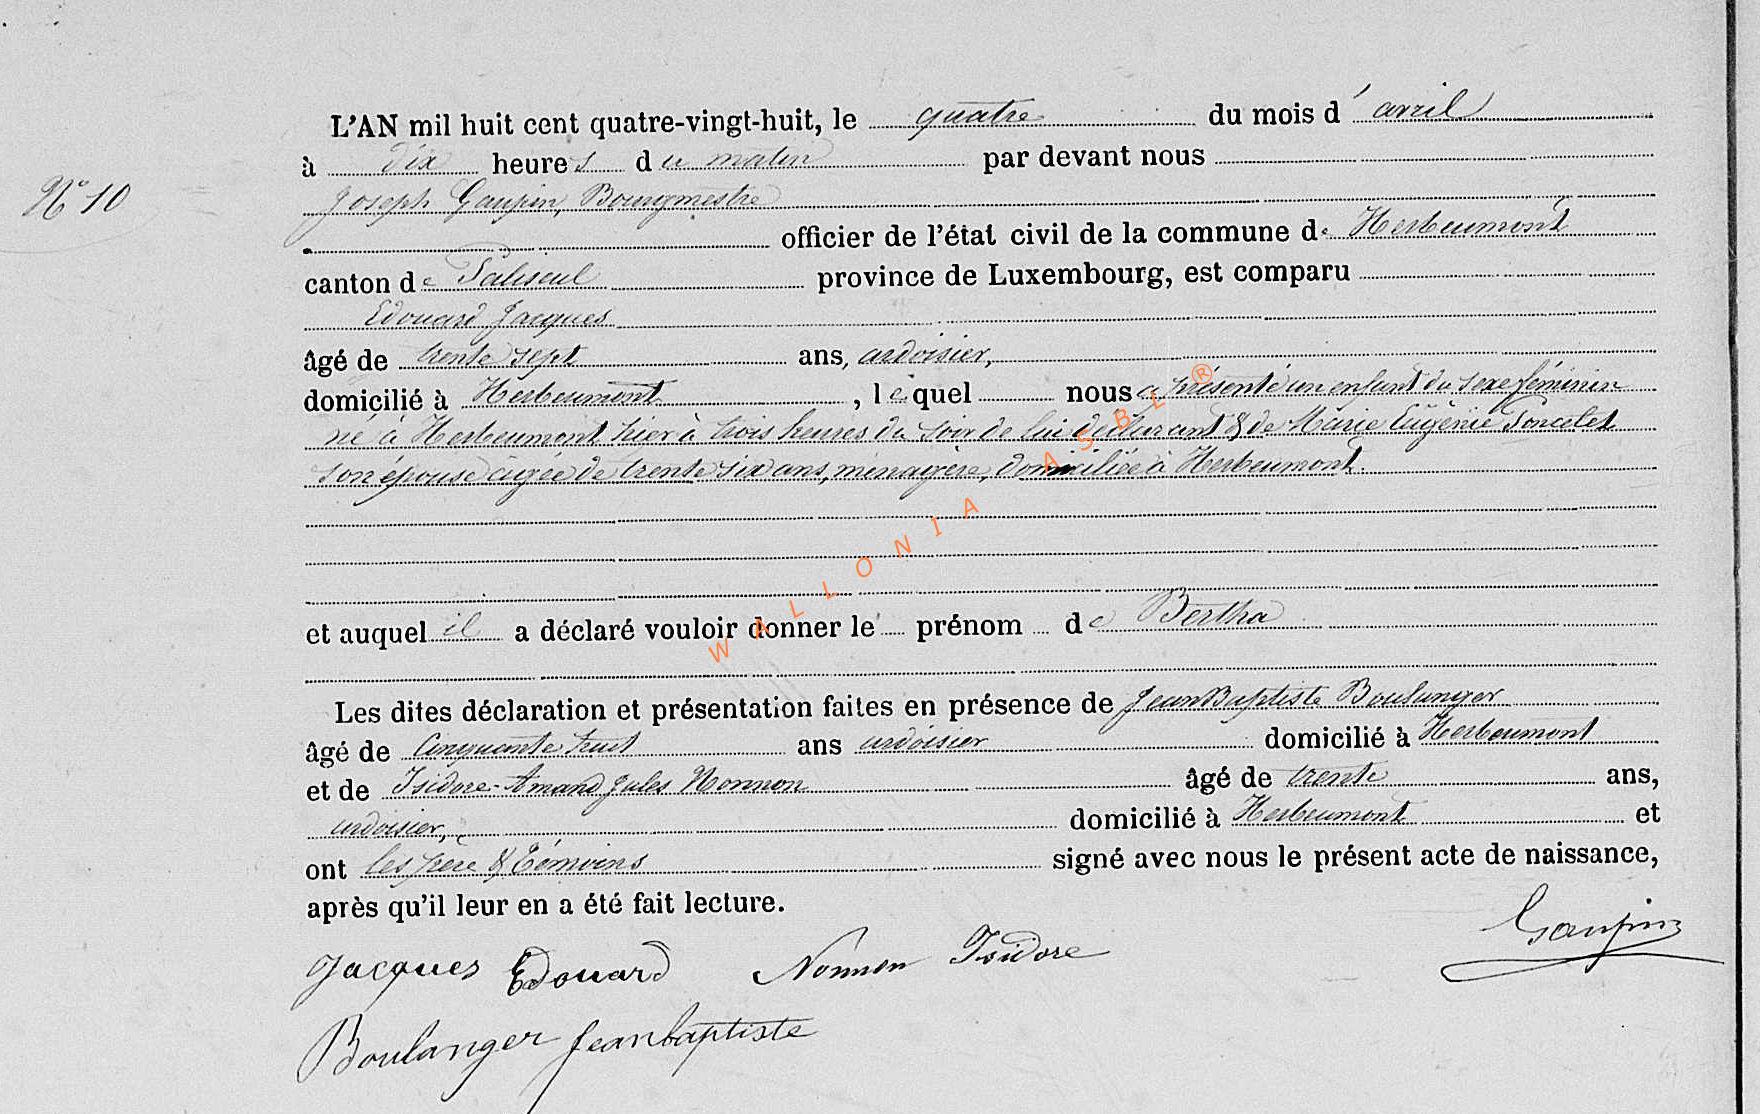 L'AN mil huit cent quatre-vingt-huit, le quatre du mois d'avril
à dix heures du matin par devant nous
N° 10
Joseph Gaupin, Bourgmestre
officier de l'état civil de la commune de Herbeumont
canton de Paliseul province de Luxembourg, est comparu
Edouard Jacques
âgé de trente sept ans, ardoisier,
domicilié à Herbeumont, lequel nous a présenté un enfant du sexe féminin
né à Herbeumont hier à trois heures du soir de lui déclarant & de Marie Eugénie Poncelet
son épouse âgée de trente six ans, ménagère, domiciliée à Herbeumont.
et auquel il a déclaré vouloir donner le prénom de Bertha
Les dites déclaration et présentation faites en présence de Jean Baptiste Boulanger
âgé de cinquante huit ans ardoisier domicilié à Herbeumont
et de Isidore-Amand Jules Nonnon âgé de trente ans,
ardoisier, domicilié à Herbeumont et
ont les père & témoins signé avec nous le présent acte de naissance,
après qu'il leur en a été fait lecture.
Gaupin
Jacques Edouard Nonnon Isidore
Boulanger Jeanbaptiste
WALLONIA ASBL ®